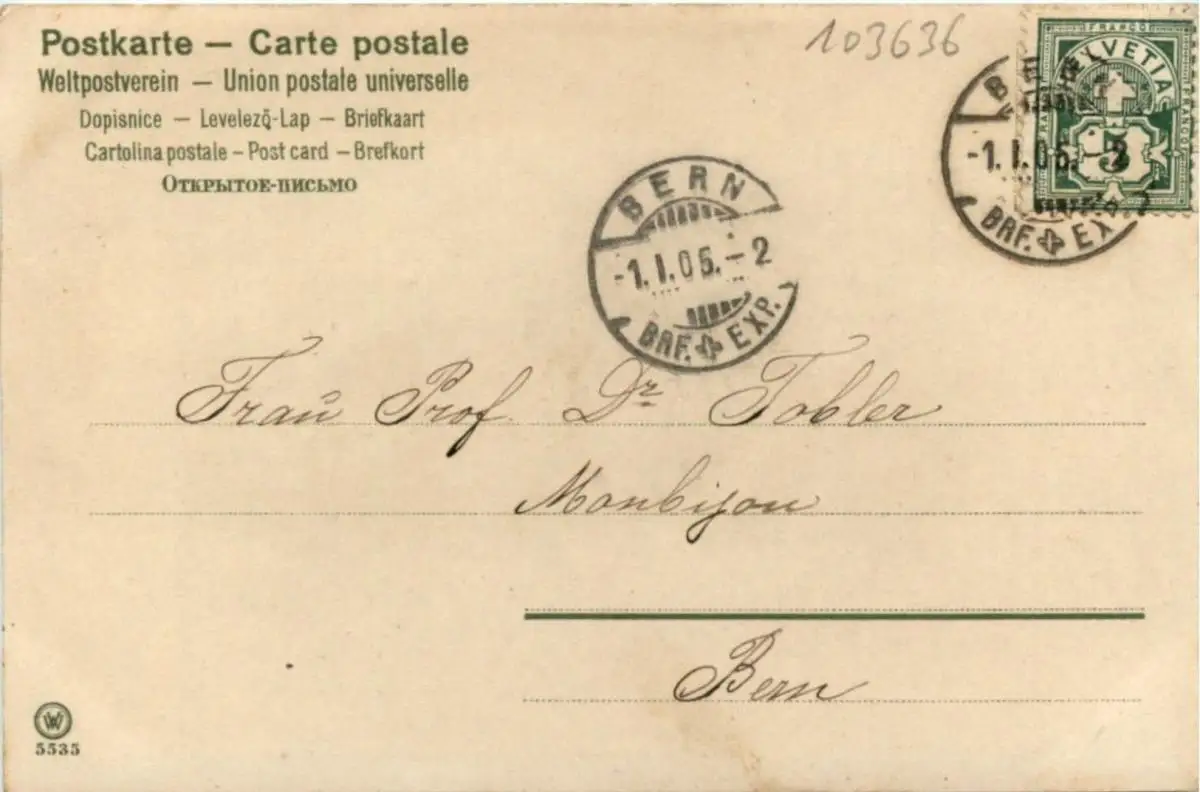 Postkarte — Carte postale
Weltpostverein — Union postale universelle
Dopisnice — Levelező-Lap — Briefkaart
Cartolina postale – Post card – Brefkort
Открытое-письмо
103636
FRANCO
HELVETIA
5
BERN
-1.I.06.-2
BRF. EXP.
BERN
-1.I.06.-2
BRF. EXP.
Frau Prof. Dr. Tobler
Monbijou
Bern
W
5535